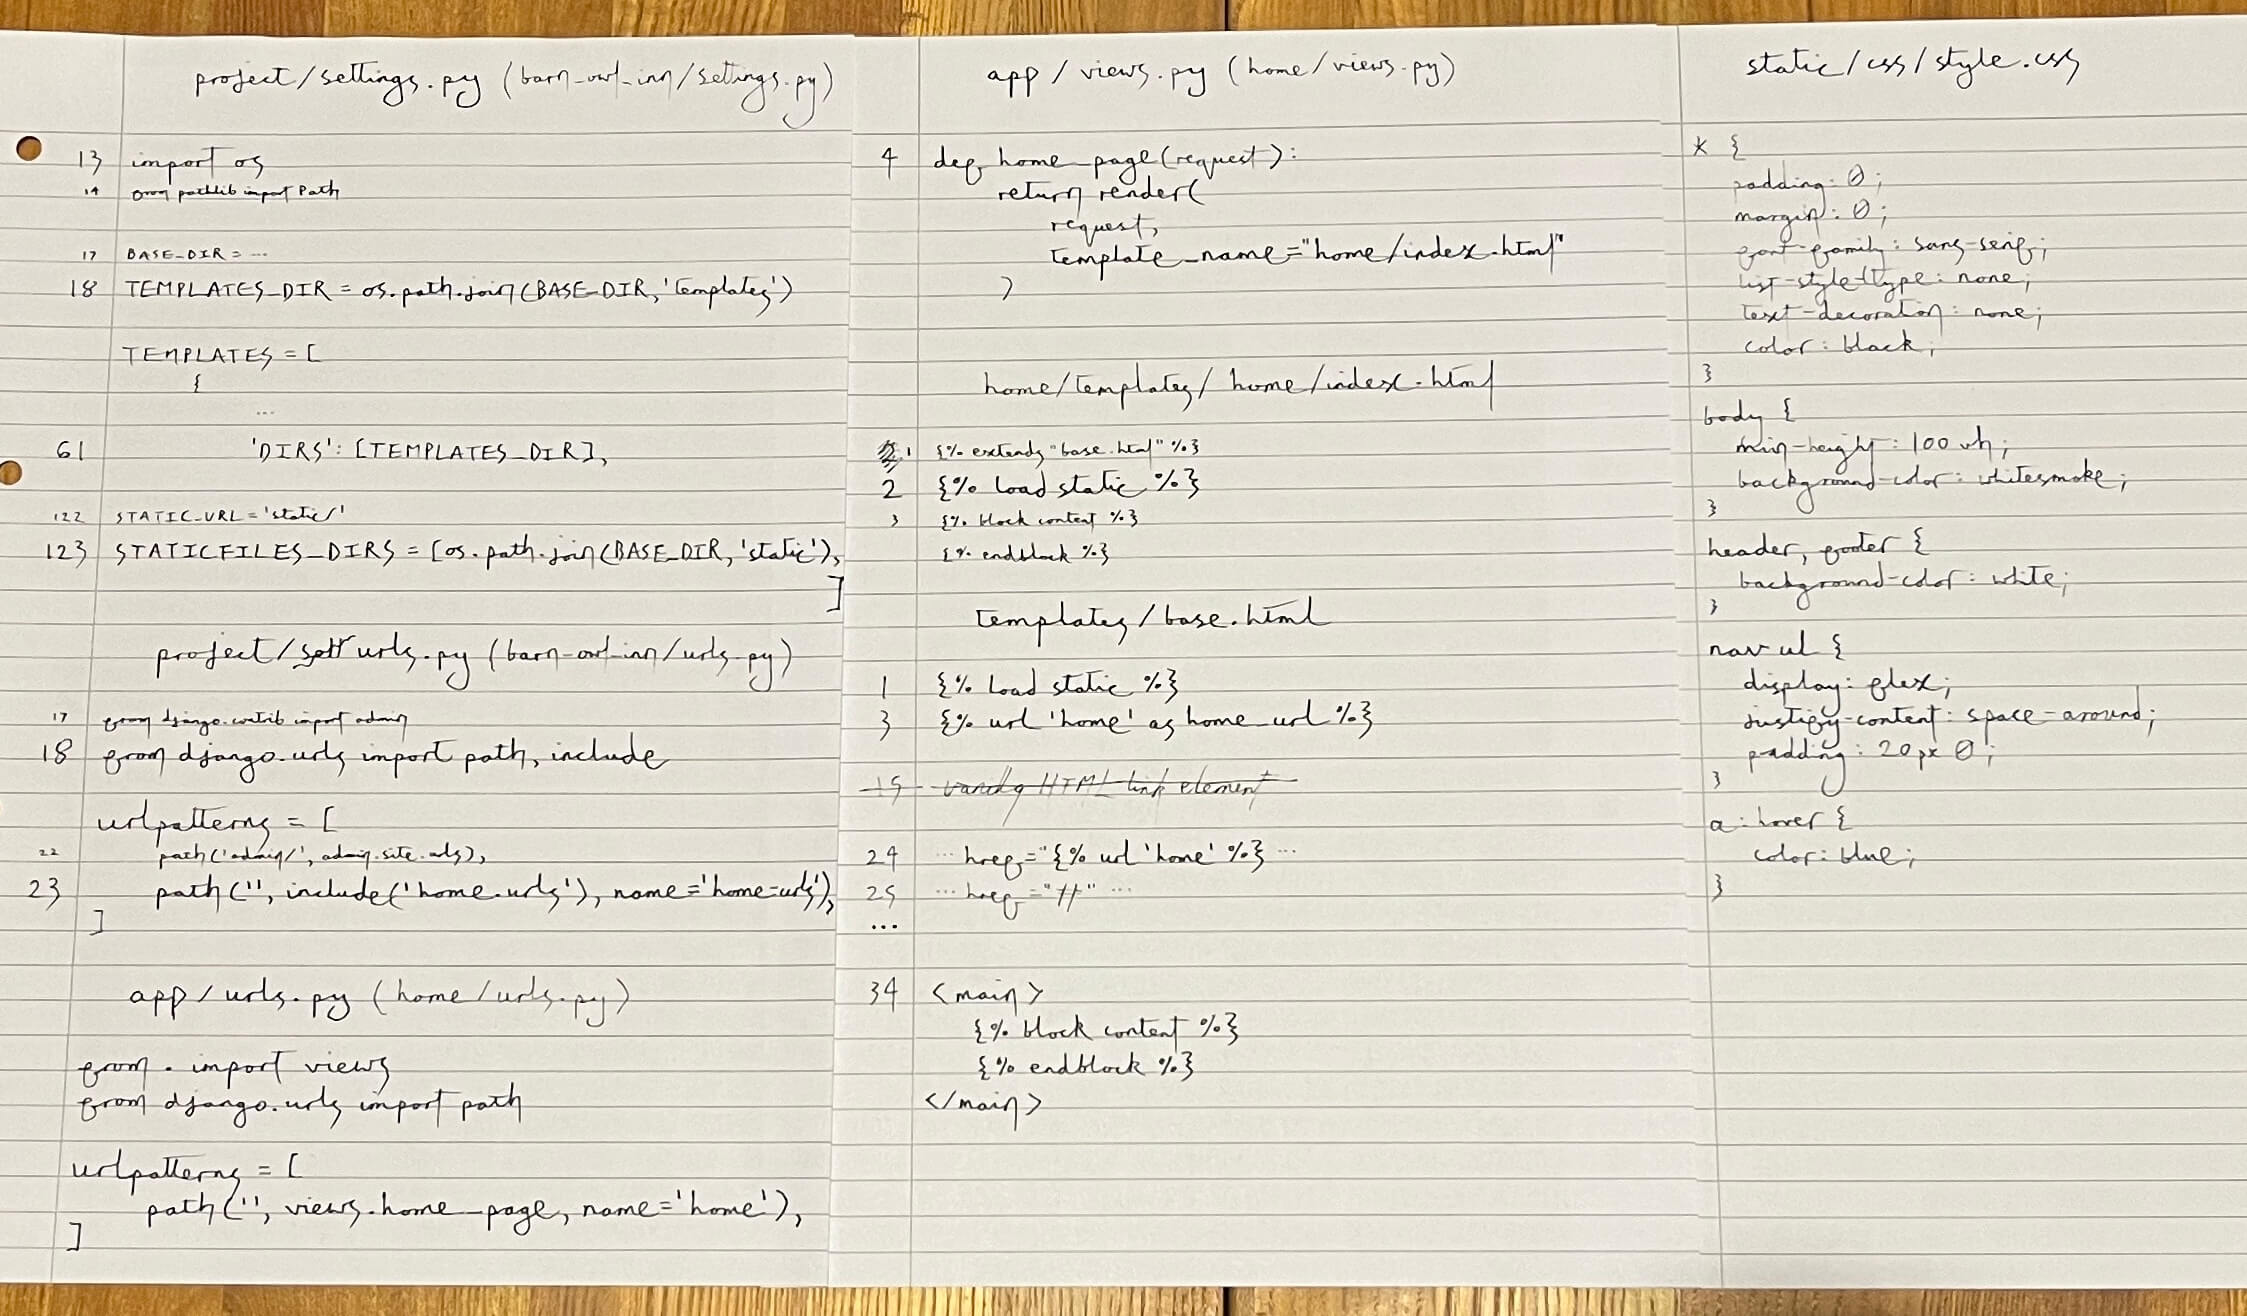 project/settings.py (barn_owl_inn/settings.py)
13 import os
14 from pathlib import Path
17 BASE_DIR = ...
18 TEMPLATES_DIR = os.path.join(BASE_DIR, 'templates')
TEMPLATES = [
{
...
61 'DIRS': [TEMPLATES_DIR],
122 STATIC_URL = 'static/'
123 STATICFILES_DIRS = [os.path.join(BASE_DIR, 'static'),
]
project/sett urls.py (barn_owl_inn/urls.py)
17 from django.contrib import admin
18 from django.urls import path, include
urlpatterns = [
22 path('admin/', admin.site.urls),
23 path('', include('home.urls'), name='home-urls'),
]
app/urls.py (home/urls.py)
from . import views
from django.urls import path
urlpatterns = [
path('', views.home_page, name='home'),
]
app/views.py (home/views.py)
4 def home_page(request):
return render(
request,
template_name="home/index.html"
)
home/templates/home/index.html
1 {% extends "base.html" %}
2 {% load static %}
3 {% block content %}
{% endblock %}
templates/base.html
1 {% load static %}
3 {% url 'home' as home_url %}
15 HTML link element
24 ... href="{% url 'home' %} ...
25 ... href="#" ...
...
34 <main>
{% block content %}
{% endblock %}
</main>
static/css/style.css
* {
padding: 0;
margin: 0;
font-family: sans-serif;
list-style-type: none;
text-decoration: none;
color: black;
}
body {
min-height: 100vh;
background-color: whitesmoke;
}
header, footer {
background-color: white;
}
nav ul {
display: flex;
justify-content: space-around;
padding: 20px 0;
}
a:hover {
color: blue;
}